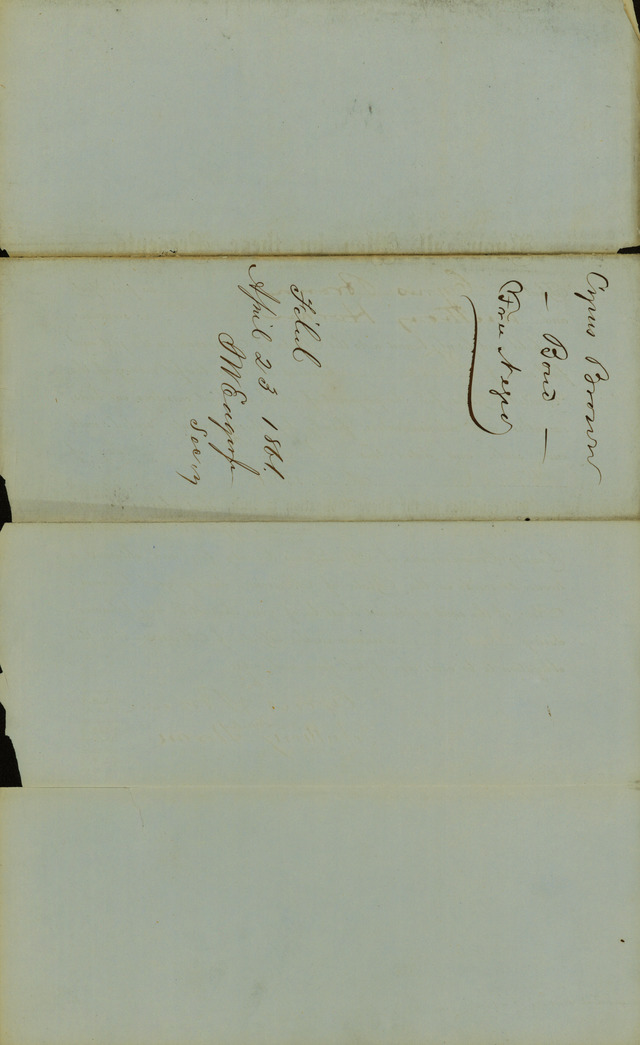 Cyrus Brown
— Bond —
Free Negro
Filed
April 23 1861.